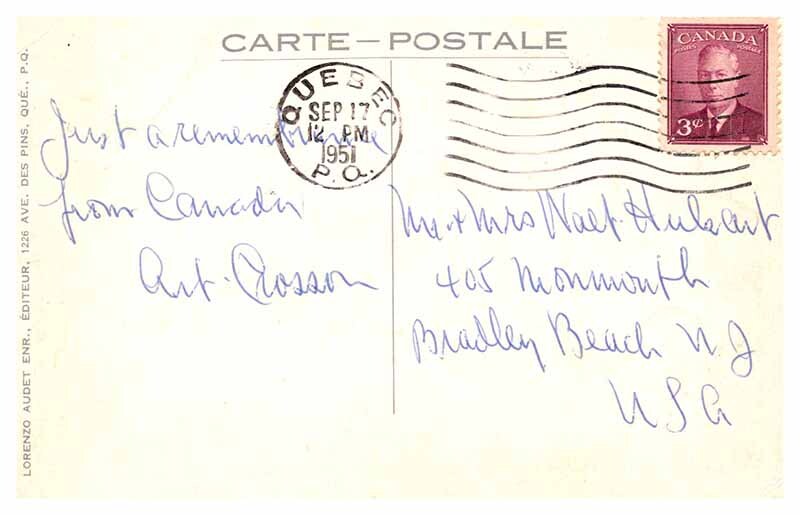 CARTE-POSTALE
CANADA
POSTES POSTAGE
3¢
QUEBEC
SEP 17
12 PM
1951
P.Q.
Just a remembrance
from Canada
Art.
Mr & Mrs Walt
405 Monmouth
Bradley Beach N J
USA
LORENZO AUDET ENR., ÉDITEUR, 1226 AVE. DES PINS, QUÉ., P.Q.